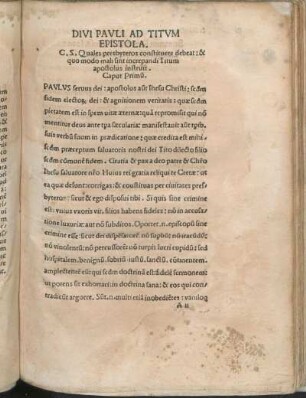 DIVI PAVLI AD TITVM
EPISTOLA.
C. S. Quales presbyteros constituere debeat: &
quo modo mali sint increpandi Titum
apostolus instruit.
Caput Primũ.
PAVLVS seruus dei: apostolus aũt Ihesu Christi: scđm
fidem electoȝ dei: & agnitionem veritatis: quæ scđm
pietatem est in spem vitæ æternæ: quã repromisit qui nõ
mentitur deus ante tpa secularia: manifestauit aũt
suis verbũ suum in prædicatione: quæ credita est mihi
scđm præceptum saluatoris nostri dei Tito dilecto filio
scđm cõmunẽ fidem. Gratia & pax a deo patre & Chřo
Ihesu saluatore nřo. Huius rei gratia reliqui te Cretæ: ut
ea quæ desunt corrigas: & constituas per ciuitates presby
byteros: sicut & ego disposui tibi. Si quis sine crimine
est: vnius vxoris vir. filios habens fideles: nõ in accusa
tione luxuriæ aut nõ subditos. Oportet .n. epiṡcopũ sine
crimine esse: sicut dei dispẽsatorẽ: nõ supbũ: nõ iracũdũ:
nõ vinolentũ: nõ percussorẽ: nõ turpis lucri cupidũ: sed
hospitalem. benignũ. sobriũ: iustũ. sanctũ. cõtinentem.
amplectentẽ eũ qui scđm doctrinã est: fidelẽ sermonem:
ut potens sit exhortari in doctrina sana: & eos qui con-
tradicũt arguere. Sũt .n. multi etiã inobediẽtes: vaniloq
A ii